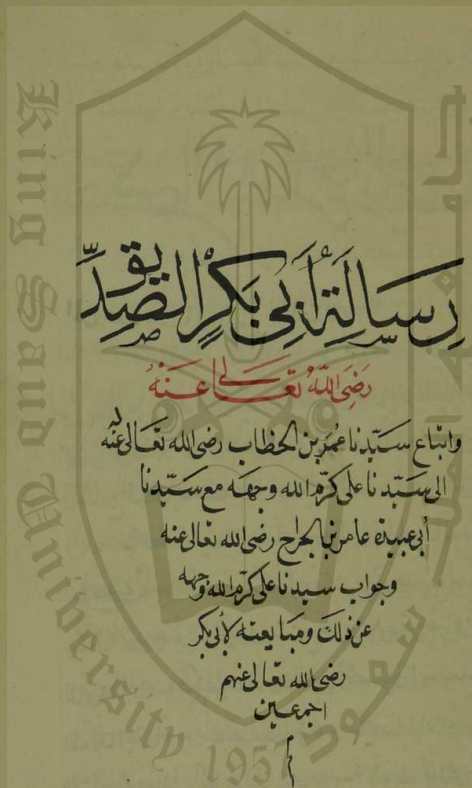 رِسَالَةُ أَبِي بَكْرٍ الصِّدِّيق
رَضِيَ اللهُ تَعَالَى عَنْهُ
واتباع سيّدنا عُمَر بن الخطاب رضى الله تعَالى عنه له
الى سيّدنا على كرّم الله وجهه مع سيّدنا
أبى عبيدة عامر بن الجراح رضى الله تعالى عنه
وجواب سيدنا على كرّم الله وجهه
عن ذلك ومبايعته لأبى بكر
رضى الله تعالى عنهم
اجمعين
King Saud University
1957
جامعة الملك سعود